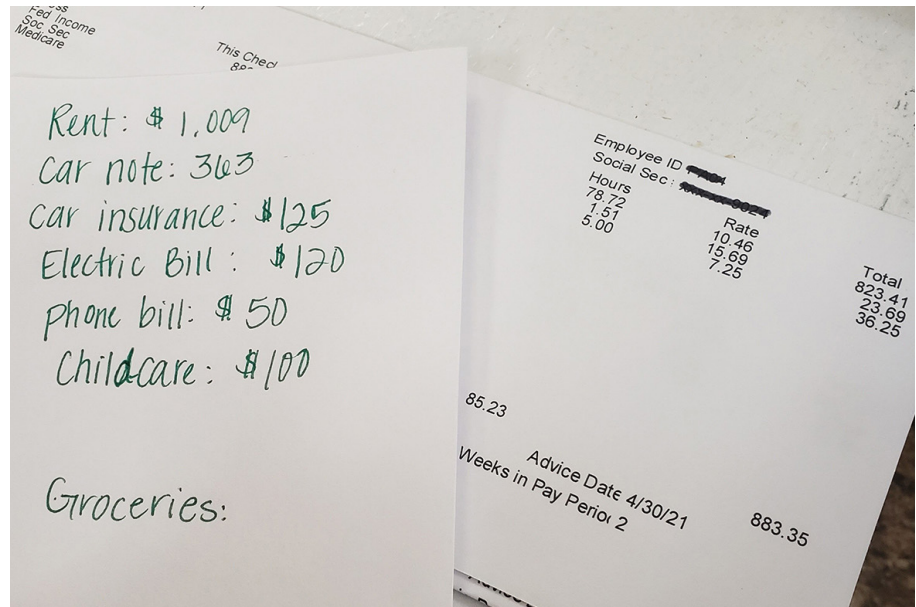 ss
Fed Income
Soc Sec
Medicare
This Chec
88
Rent: $ 1,009
Car note: 363
Car insurance: $125
Electric Bill: $120
phone bill: $ 50
Childcare: $100
Groceries:
Employee ID
Social Sec:
Hours Rate Total
78.72 10.46 823.41
1.51 15.69 23.69
5.00 7.25 36.25
85.23
Advice Date 4/30/21 883.35
Weeks in Pay Perio 2